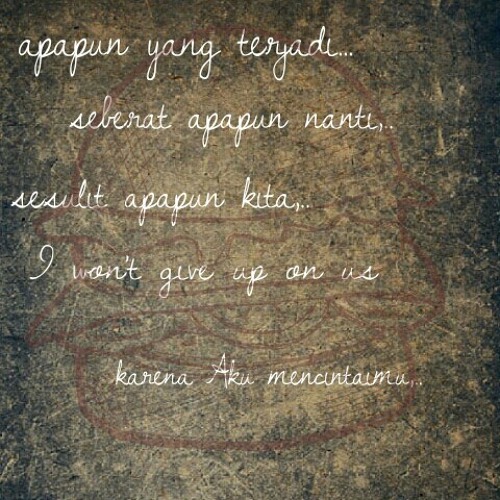 apapun yang terjadi...
seberat apapun nanti,..
sesulit apapun kita,..
I won't give up on us
karena Aku mencintaimu,..